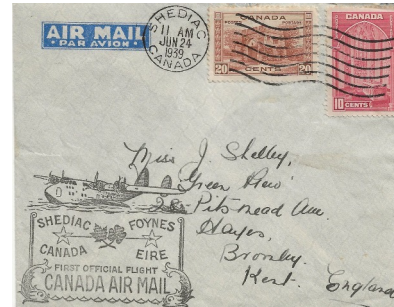 AIR MAIL
PAR AVION
SHEDIAC
11 AM
JUN 24
1939
CANADA
CANADA
POSTAGE POSTES
20 CENTS 20
CANADA
10 CENTS
Miss J. Shelley,
Green
Pitsmead Ave.
Hayes,
Bromley
Kent.
England
SHEDIAC FOYNES
CANADA EIRE
FIRST OFFICIAL FLIGHT
CANADA AIR MAIL